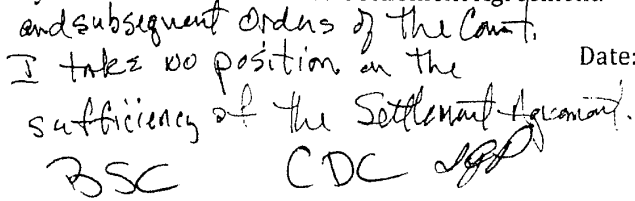 and subsequent Orders of the Court.
I take no position on the
Date:
sufficiency of the Settlement Agreement.
BSC CDC